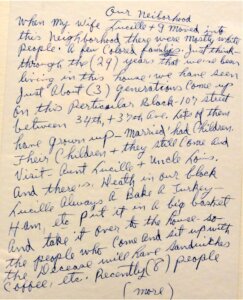 Our Neiborhood
When My Wife Lucille + I Moved into
this Neighborhood there were Mostly white
people. A few Colored families. Just think-
through the (29) years that we've been
living in this house. we have seen
Just About (3) Generations Come up
on this Particular Block-107 street
between 34th, + 37th Ave. Lots of them
have Grown up- Married, had Children.
Their Children + they still Come and
Visit Aunt Lucille + Uncle Louis.
And there's Death in our block
Lucille Always Bake A Turkey-
Ham, etc put it in a big basket
And take it over to the house- so-
the people who Come and sit up with
the will have Sandwiches
Coffee, etc. Recently (8) people
(more)